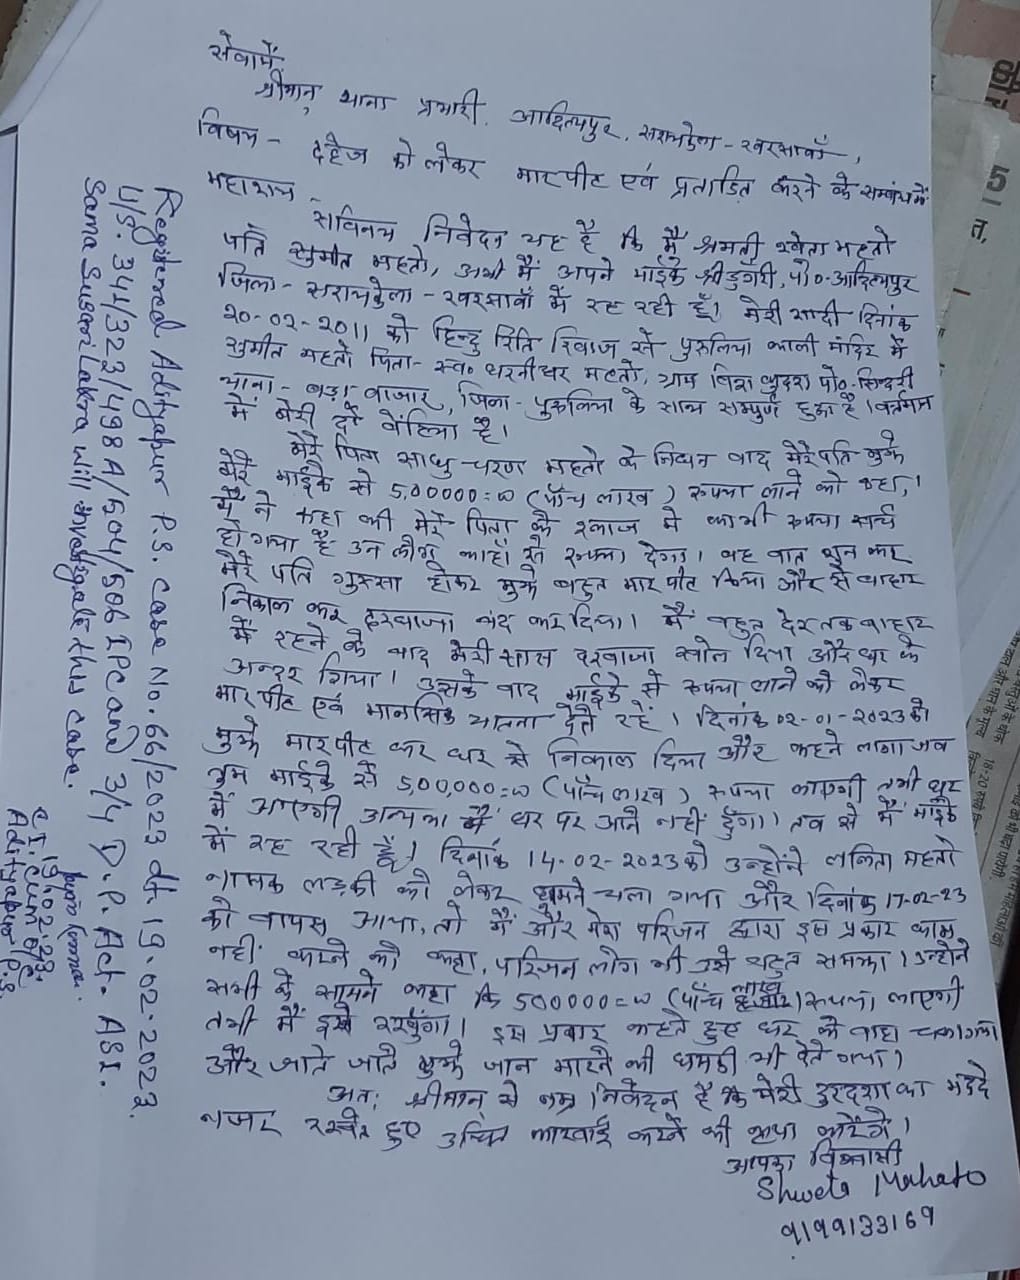 सेवामें,
श्रीमान् थाना प्रभारी, आदित्यपुर, सरायकेला - खरसावाँ,
विषय - दहेज को लेकर मारपीट एवं प्रताडित करने के सम्बंध में
महाशय,
सविनय निवेदन यह है कि मैं श्रमती श्वेता महतो
पति सुमीत महतो, अभी मैं अपने माईके श्रीडुंगरी, पो०-आदित्यपुर
जिला - सरायकेला - खरसावाँ में रह रही हूँ। मेरी शादी दिनांक
20-02-2011 को हिन्दु रिति रिवाज से पुरुलिया काली मंदिर में
सुमीत महतो पिता - स्व० धरनीधर महतो, ग्राम पो०-सिन्दरी
थाना - बड़ा बाजार, जिला - पुरुलिया के साथ सम्पुर्ण हुआ है। वर्त्तमान
में मेरी दो बेटिया है।
मेरे पिता साधु चरण महतो के निधन बाद मेरे पति मुझे
मेरे माईके से 5,00000=00 (पाँच लाख) रूपया लाने को कहा,।
मैं ने कहा की मेरे पिता के इलाज मे काफी रूपया खर्च
हो गया है उन लोग काहाँ से रूपया देगा। यह बात सुन कर
मेरे पति गुस्सा होकर मुझे बहुत मार पीट किया और से बाहार
निकाल कर दरवाजा बंद कर दिया। मैं बहुत देर तक बाहार
में रहने के बाद मेरी सास दरवाजा खोल दिया और घर के
अन्दर गिया। उसके बाद माईके से रूपया लाने को लेकर
मारपीट एवं मानसिक यातना देते रहें। दिनांक 02-01-2023 को
मुझे मारपीट कर घर से निकाल दिया और कहने लागा जब
तुम माईके से 5,00,000=00 (पाँच लाख) रूपया लाएगी तभी घर
में आएगी अन्यथा मैं घर पर आने नहीं दुँगा। तब से मैं माईके
में रह रही हूँ। दिनांक 14-02-2023 को उन्होने ललिता महतो
नामक लड़की को लेकर घुमने चला गया और दिनांक 17-02-23
को वापस आया, तो मैं और मेरा परिजन द्वारा इस प्रकार काम
नही करने को कहा, परिजन लोग भी उसे बहुत समझा। उन्होने
सभी के सामने कहा कि 500000=00 (पाँच लाख) रूपया लाएगी
तभी मैं इसे रखुंगा। इस प्रकार कहते हुए घर से बाहा चला गया
और जाते जाते मुझे जान मारने की धमकी भी देते गया।
अत: श्रीमान् से नम्र निवेदन है कि मेरी दुरदशा का मद्दे
नजर रखते हुए उचित कारवाई करने की कृपा करेंगे।
आपका विश्वासी
Shweta Mahato
9199133169
Registered Adityapur P.S. Case No. 66/2023 dt. 19.02.2023.
U/S. 341/323/498A/504/506 IPC and 3/4 D.P. Act. ASI.
Sama Susar Lakra will investigate this case.
19.02.23.
Adityapur P.S.
18-20
5
त,